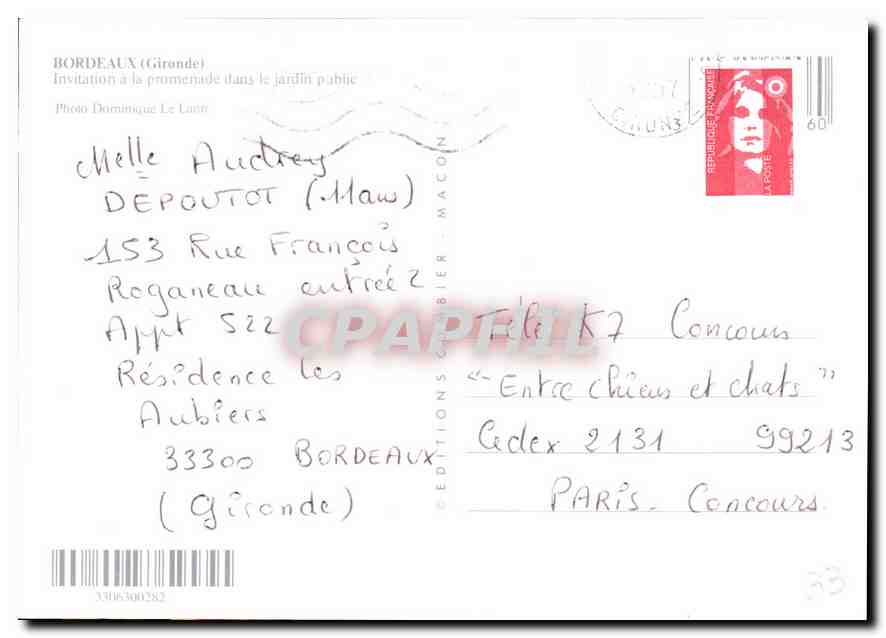 BORDEAUX (Gironde)
Invitation à la promenade dans le jardin public
Photo Dominique Le
Melle Audrey
DEPOUTOT (11 ans)
153 Rue François
Roganeau entrée 2
Appt 522
Résidence les
Aubiers
33300 BORDEAUX
(Gironde)
3306300282
© EDITIONS COMBIER - MACON
REPUBLIQUE FRANÇAISE
LA POSTE
60
Télé K7 Concours
"Entre chiens et chats"
Cedex 2131 99213
PARIS - Concours.
33
CPAPHIL